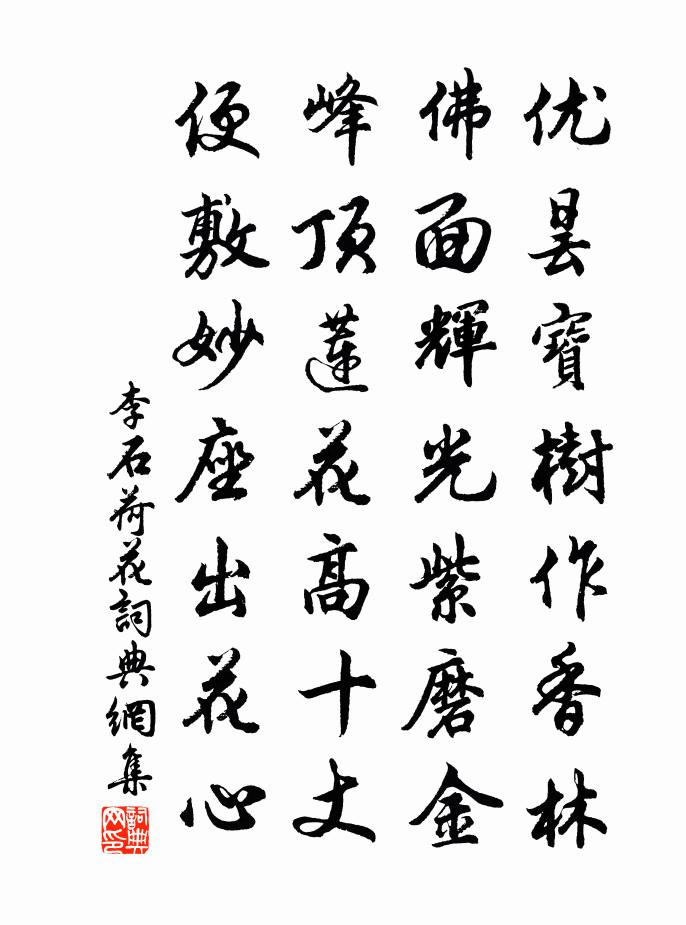 优昙寶樹作香林
佛面輝光紫磨金
峰頂蓮花高十丈
便敷妙座出花心
李石荷花詞典網集
詞典网印